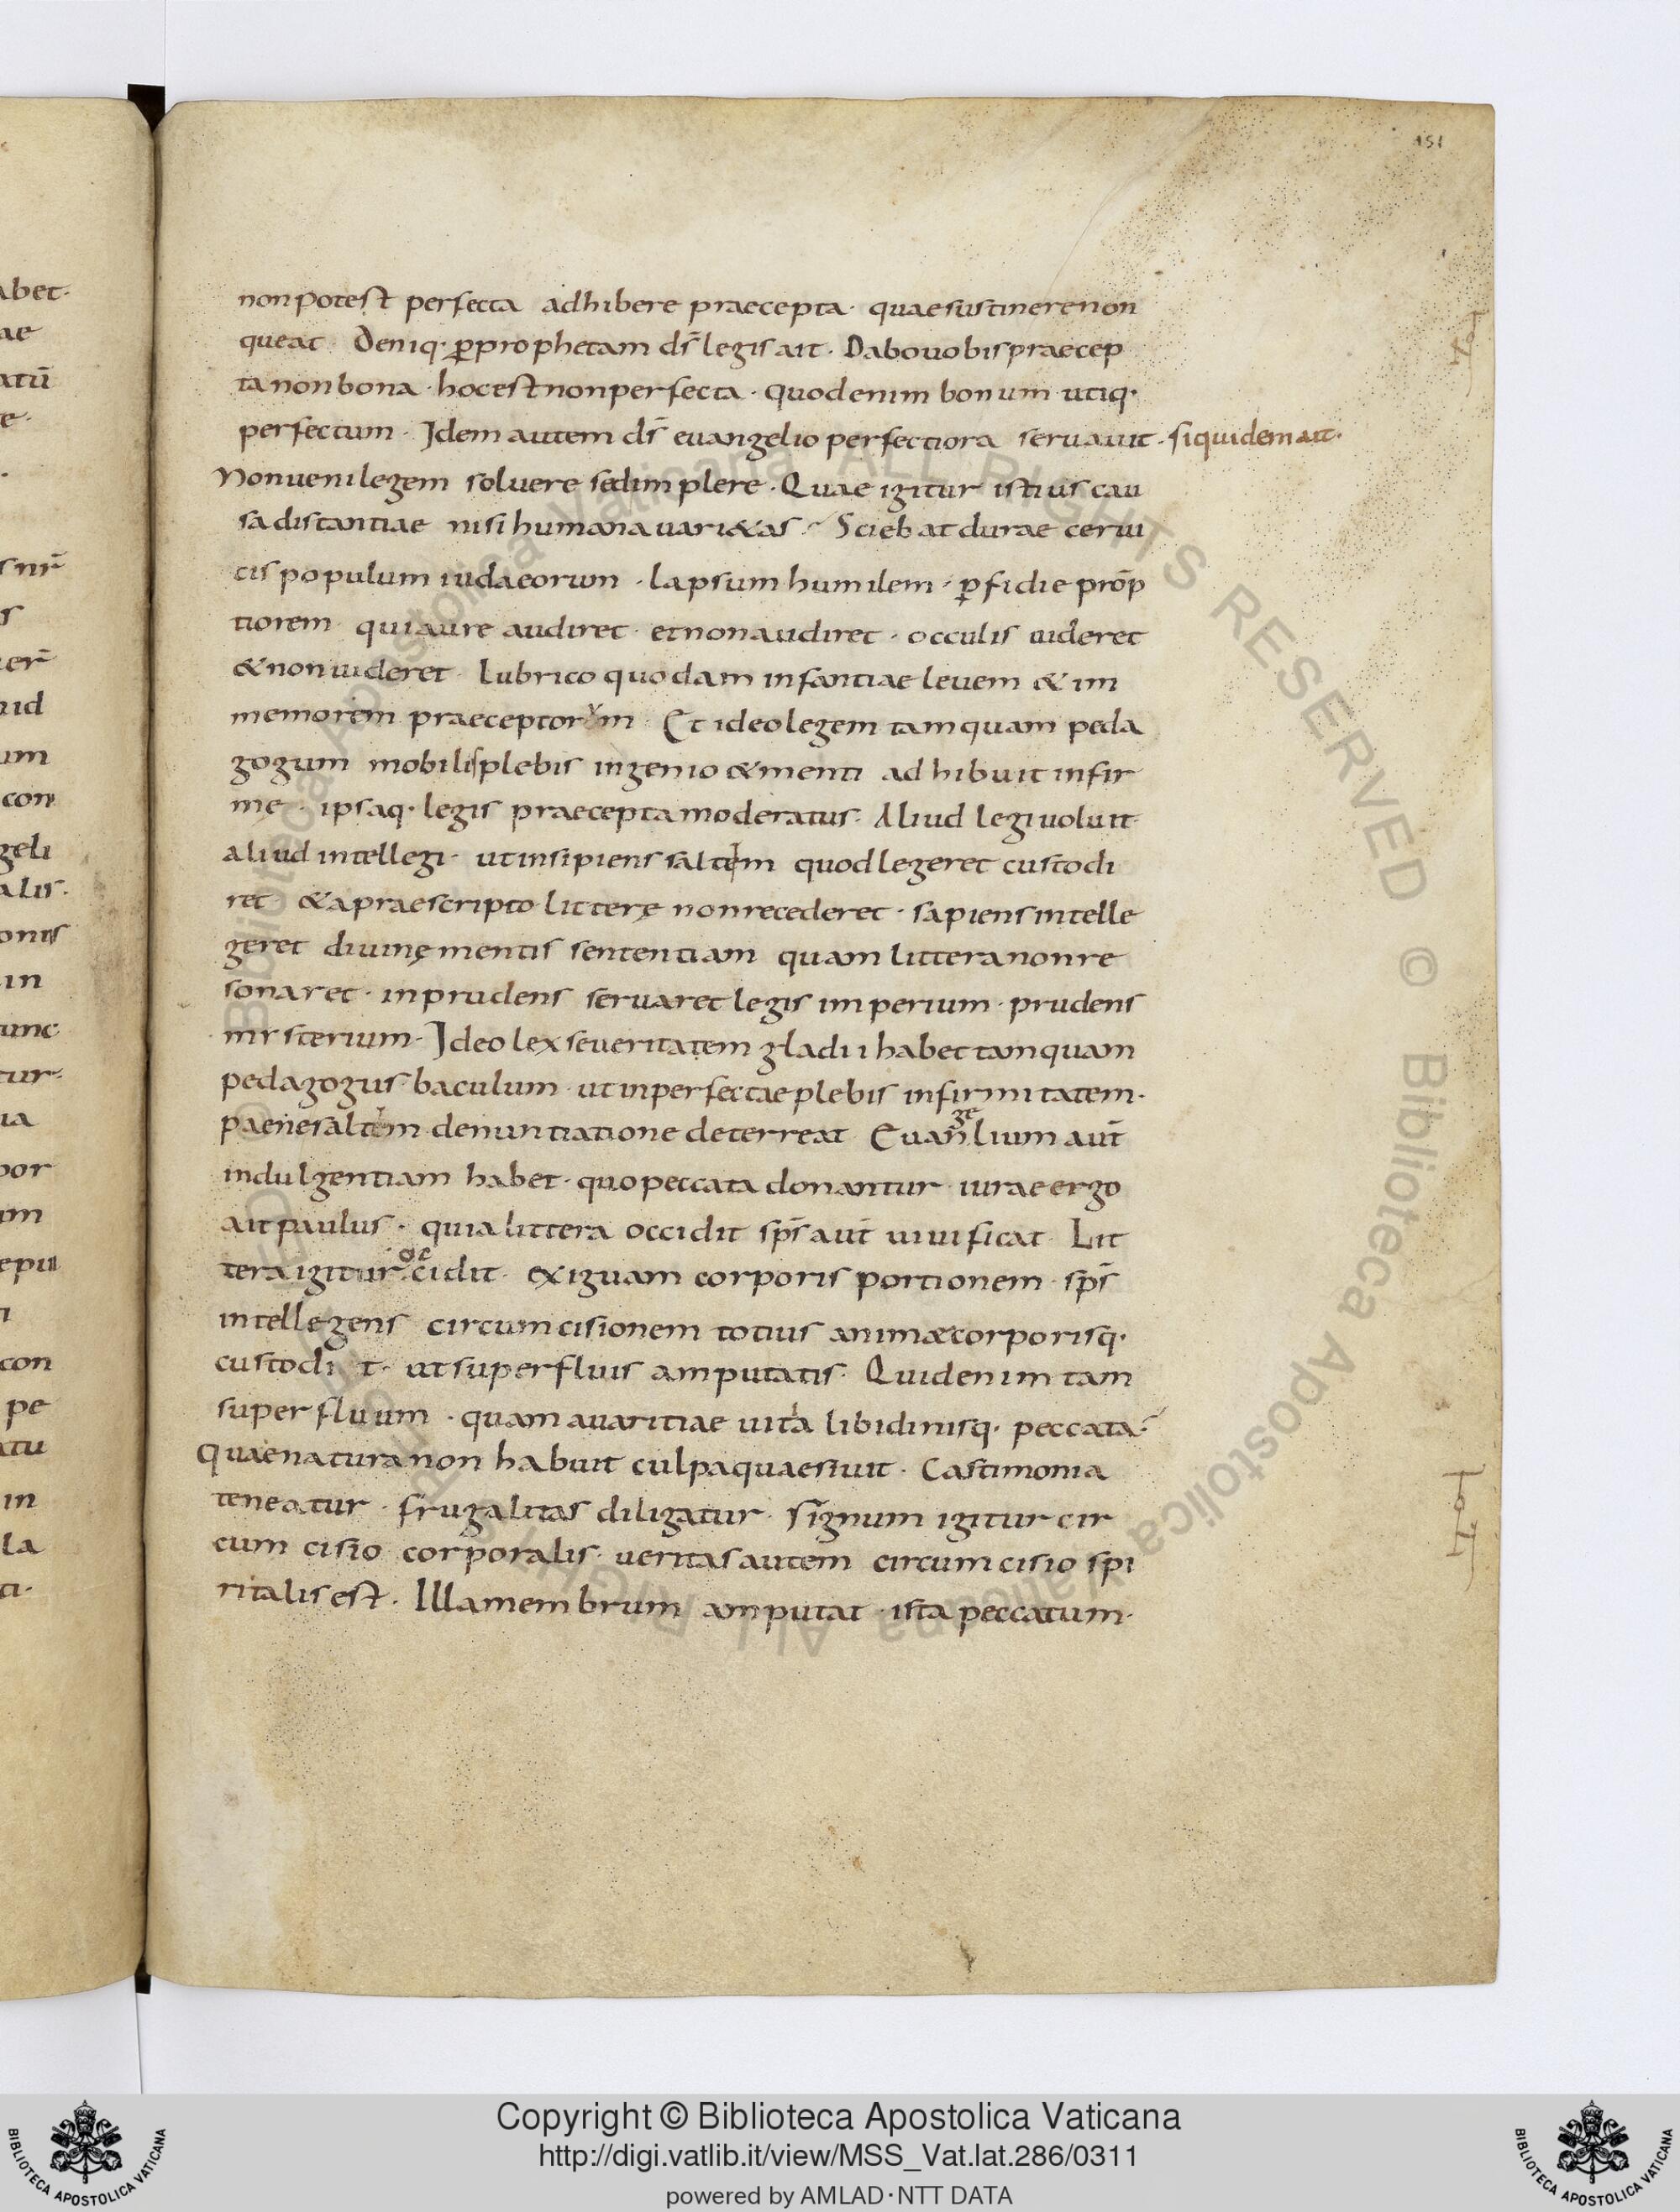 151
non potest perfecta adhibere praecepta · quae sustinere non
queat · Deniq· ꝑ prophetam ds̄ legis ait · Dabo uobis praecep
ta non bona · hoc est non perfecta · quod enim bonum utiq·
perfectum · Idem autem ds̄ euangelio perfectiora seruauit · siquidem ait ·
Non ueni legem soluere sed implere · Quae igitur istius cau
sa distantiae nisi humana uari&as · Sciebat durae cerui
cis populum iudaeorum · lapsum humilem · ꝑfidie prōp
tiorem · qui aure audiret · et non audiret · occulis uideret
& non uideret · lubrico quodam infantiae leuem & im
memorem praeceptorum · Et ideo legem tamquam peda
gogum mobilis plebis ingenio & menti adhibuit infir
me · ipsaq· legis praecepta moderatus · Aliud legi uoluit
aliud intellegi · ut insipiens saltem quod legeret custodi
ret · & a praescripto litterę non recederet · sapiens intelle
geret diuinę mentis sententiam quam littera non re
sonaret · inprudens seruaret legis imperium · prudens
mysterium · Ideo lex seueritatem gladii habet tamquam
pedagogus baculum · ut inperfectae plebis infirmitatem ·
paene saltim denuntiatione deterreat · Euangelium aut̄
indulgentiam habet · quo peccata donantur · iurae ergo
ait paulus · quia littera occidit sps̄ aut̄ uiuificat · Lit
tera igitur occidit · exiguam corporis portionem · sps̄
intellegens circumcisionem totius animæ corporisq·
custodi t · ut superfluis amputatis · Quid enim tam
superfluum · quam auaritiae uita libidinisq· peccata ·
Quae natura non habuit culpa quaesiuit · Castimonia
teneatur · frugalitas diligatur · signum igitur cir
cumcisio corporalis · ueritas autem circumcisio spi
ritalis est · Illa membrum amputat · ista peccatum ·
Copyright © Biblioteca Apostolica Vaticana
http://digi.vatlib.it/view/MSS_Vat.lat.286/0311
powered by AMLAD·NTT DATA